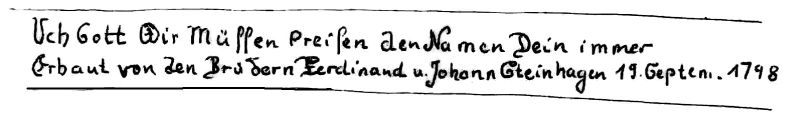 Ach Gott Dir Müssen Preisen den Namen Dein immer
Erbaut von den Brüdern Ferdinand u. Johann Steinhagen 19. Septem. 1798